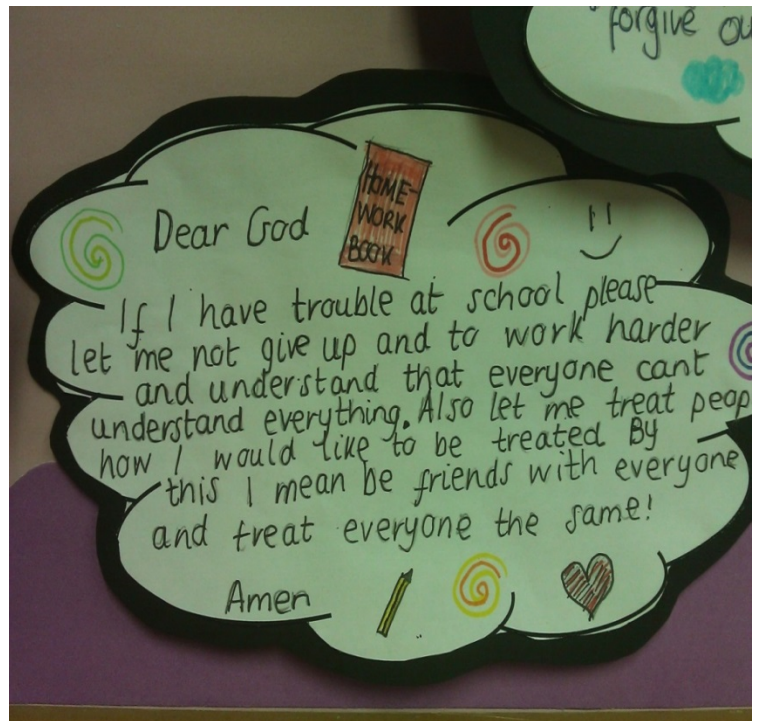 forgive ou
Dear God
HOME-
WORK
BOOK
If I have trouble at school please
let me not give up and to work harder
and understand that everyone cant
understand everything. Also let me treat peop
how I would like to be treated By
this I mean be friends with everyone
and treat everyone the same!
Amen